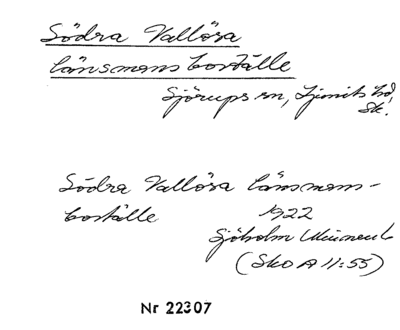 Södra Vallösa
länsmansboställe
Sjörups sn, Ljunits hd,
Sk.
Södra Vallösa länsmans-
boställe
1922
Sjöholm
(Sko A 11:55)
Nr 22307